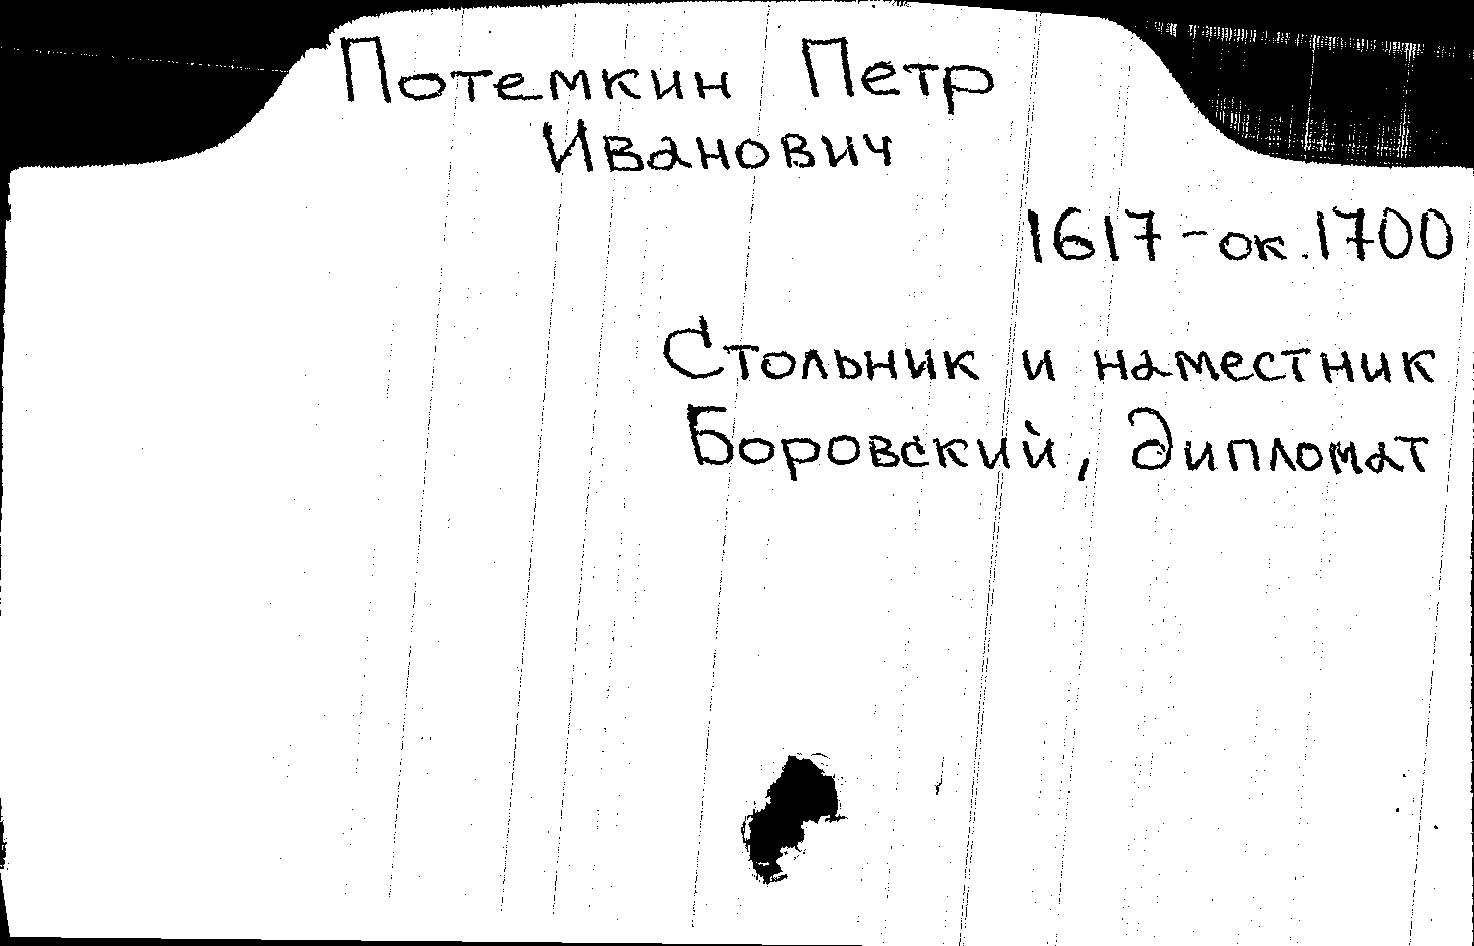 Потемкин Петр
Иванович
1617-ок.1700
Стольник и наместник
Боровский, дипломат